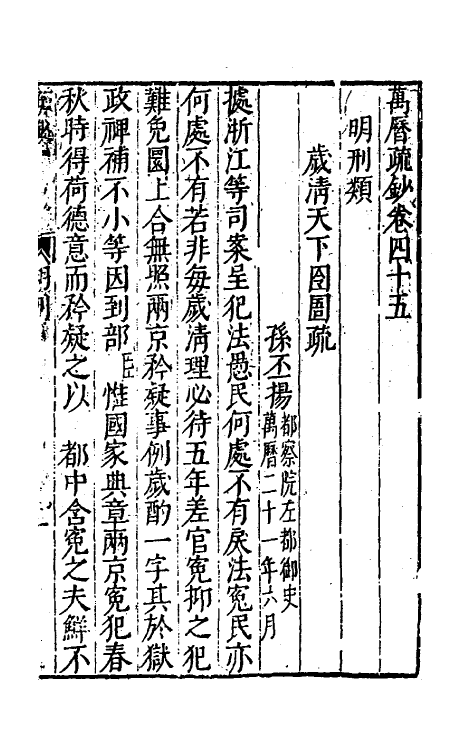 萬曆疏鈔卷四十五
明刑類
歲清天下囹圄疏
孫丕揚 都察院左都御史 萬曆二十一年六月
據浙江等司案呈犯法愚民何處不有戾法寃民亦
何處不有若非每歲清理必待五年差官寃抑之犯
難免圜上合無照兩京矜疑事例歲酌一字其於獄
政禆補不小等因到部臣惟國家典章兩京寃犯春
秋時得荷德意而矜疑之以 都中含寃之夫鮮不